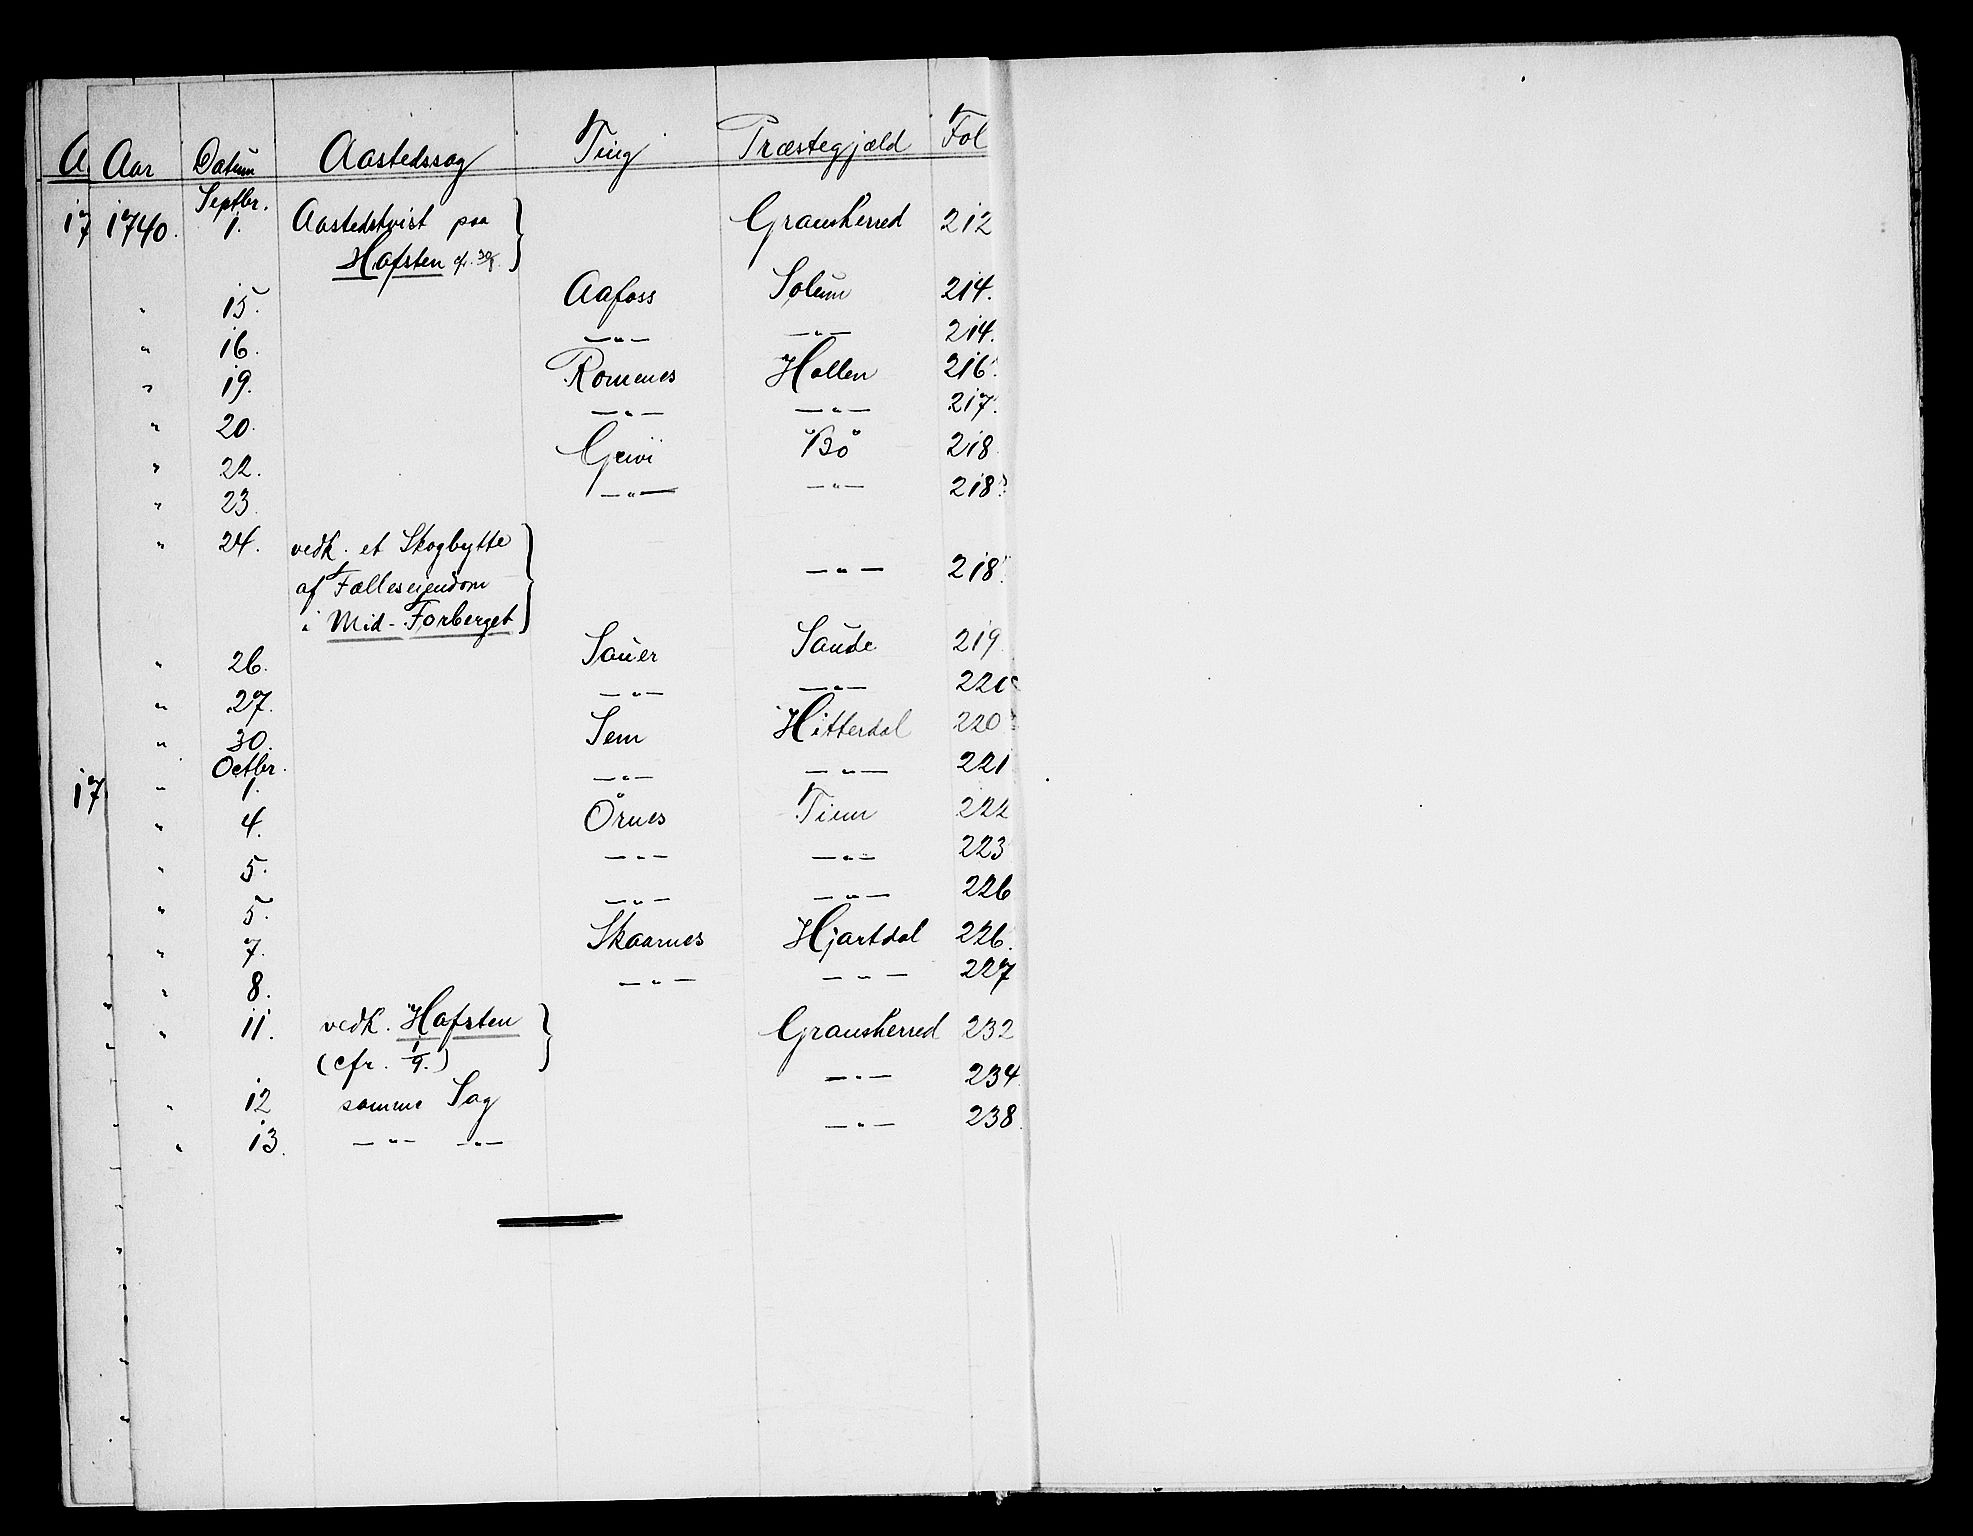 A Aar Datum Aastedssag Ting Præstegjæld Fol
Septbr.
17 1740. 1. Aastedstvist paa } Gransherred 212
Hafsten cfr.
" 15. Aafoss Solum 214.
" 16. —"— —"— 214.
" 19. Romenes Hollen 216.
" 20. —"— —"— 217.
" 22. Geivi Bö 218
" 23. —"— —"— 218
" 24. vedk. et Skogbytte }
af Fælleseiendom —"— 218
i Mid-Forberget
" 26. Sauer Saude 219
" 27. —"— —"— 220
" 30. Sem Hitterdal 220
Octbr.
17 " 1. —"— —"— 221
" 4. Örnes Tinn 222
" 5. —"— —"— 223
" 5. —"— —"— 226
" 7. Skaarnes Hjartdal 226.
" 8. —"— —"— 227
" 11. vedk. Hafsten } Gransherred 232
(cfr. 1/9.)
" 12 samme Sag —"— 234
" 13. —"— —"— —"— 238.